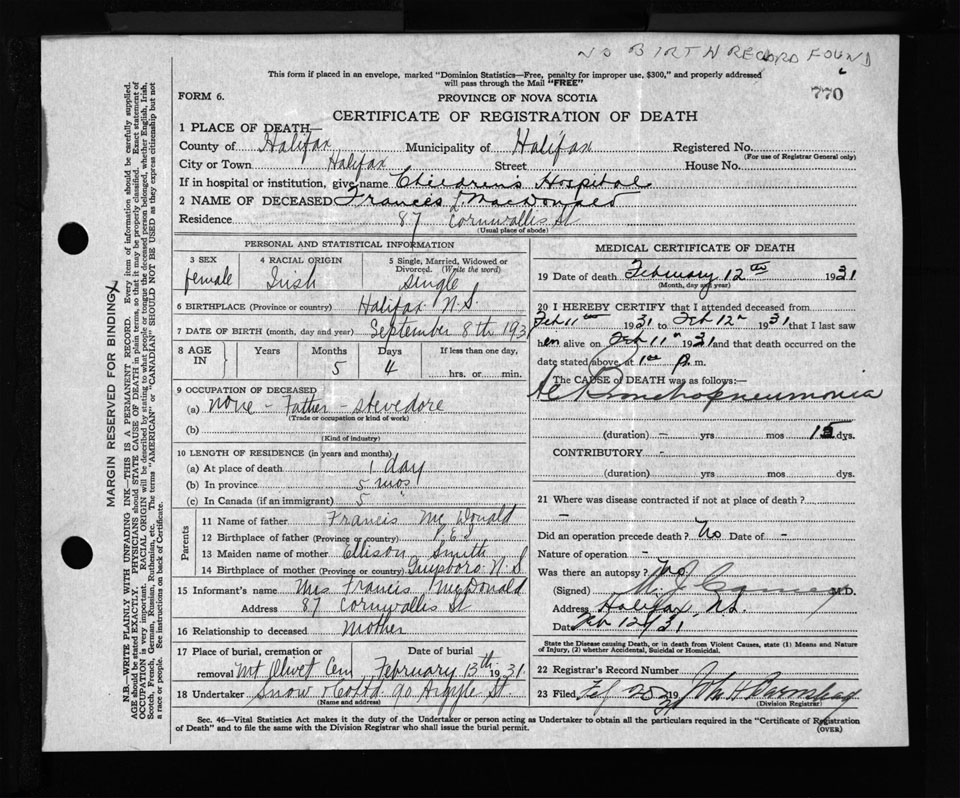 NO BIRTH RECORD FOUND
This form if placed in an envelope, marked "Dominion Statistics—Free, penalty for improper use, $300," and properly addressed
will pass through the Mail "FREE"
770
FORM 6.
PROVINCE OF NOVA SCOTIA
CERTIFICATE OF REGISTRATION OF DEATH
1 PLACE OF DEATH—
County of Halifax Municipality of Halifax Registered No.
(For use of Registrar General only)
City or Town Halifax Street House No.
If in hospital or institution, give name Childrens Hospital
2 NAME OF DECEASED Frances L. MacDonald
Residence 87 Cornwallis St
(Usual place of abode)
PERSONAL AND STATISTICAL INFORMATION
3 SEX
female
4 RACIAL ORIGIN
Irish
5 Single, Married, Widowed or
Divorced. (Write the word)
Single
6 BIRTHPLACE (Province or country) Halifax N.S.
7 DATE OF BIRTH (month, day and year) September 8th 193
8 AGE IN
Years
Months
Days
If less than one day,
5
4
hrs. or min.
9 OCCUPATION OF DECEASED
(a) none - Father - stevedore
(Trade or occupation or kind of work)
(b)
(Kind of industry)
10 LENGTH OF RESIDENCE (in years and months)
(a) At place of death 1 day
(b) In province 5 mos
(c) In Canada (if an immigrant) 5 "
Parents
11 Name of father Francis Mc Donald
12 Birthplace of father (Province or country) P.E.I
13 Maiden name of mother Ellison Smith
14 Birthplace of mother (Province or country) Guysboro N.S
15 Informant's name Mrs Francis McDonald
Address 87 Cornwallis St
16 Relationship to deceased Mother
17 Place of burial, cremation or Date of burial
removal Mt Olivet Cem February 13th 1931
18 Undertaker Snow & Co Ltd. 90 Argyle St.
(Name and address)
MEDICAL CERTIFICATE OF DEATH
19 Date of death February 12th 1931
(Month, day and year)
20 I HEREBY CERTIFY that I attended deceased from
Feb 11th 1931 to Feb 12th 1931, that I last saw
her alive on Feb 11th 1931 and that death occurred on the
date stated above at 1 00 P.m.
The CAUSE OF DEATH was as follows:—
Ac Bronchopneumonia
(duration) — yrs mos 15 dys.
CONTRIBUTORY -
(duration) yrs mos dys.
21 Where was disease contracted if not at place of death?
—
Did an operation precede death? No Date of -
Nature of operation -
Was there an autopsy? No
(Signed) M.D.
Address Halifax, N.S.
Date Feb 12/31
State the Disease causing Death, or in death from Violent Causes, state (1) Means and Nature
of Injury, (2) whether Accidental, Suicidal or Homicidal.
22 Registrar's Record Number
23 Filed 19
(Division Registrar)
Sec. 46—Vital Statistics Act makes it the duty of the Undertaker or person acting as Undertaker to obtain all the particulars required in the "Certificate of Registration
of Death" and to file the same with the Division Registrar who shall issue the burial permit.
(OVER)
MARGIN RESERVED FOR BINDING
N.B.—WRITE PLAINLY WITH UNFADING INK—THIS IS A PERMANENT RECORD. Every item of information should be carefully supplied.
AGE should be stated EXACTLY. PHYSICIANS should STATE CAUSE OF DEATH in plain terms, so that it may be properly classified. Exact statement of
OCCUPATION is very important. RACIAL ORIGIN will be described by stating to what people or tongue the deceased person belonged, whether English, Irish,
Scotch, French, German, Russian, Ruthenian, etc. The terms "AMERICAN" or "CANADIAN" SHOULD NOT BE USED as they express citizenship but not
a race or people. See instructions on back of Certificate.